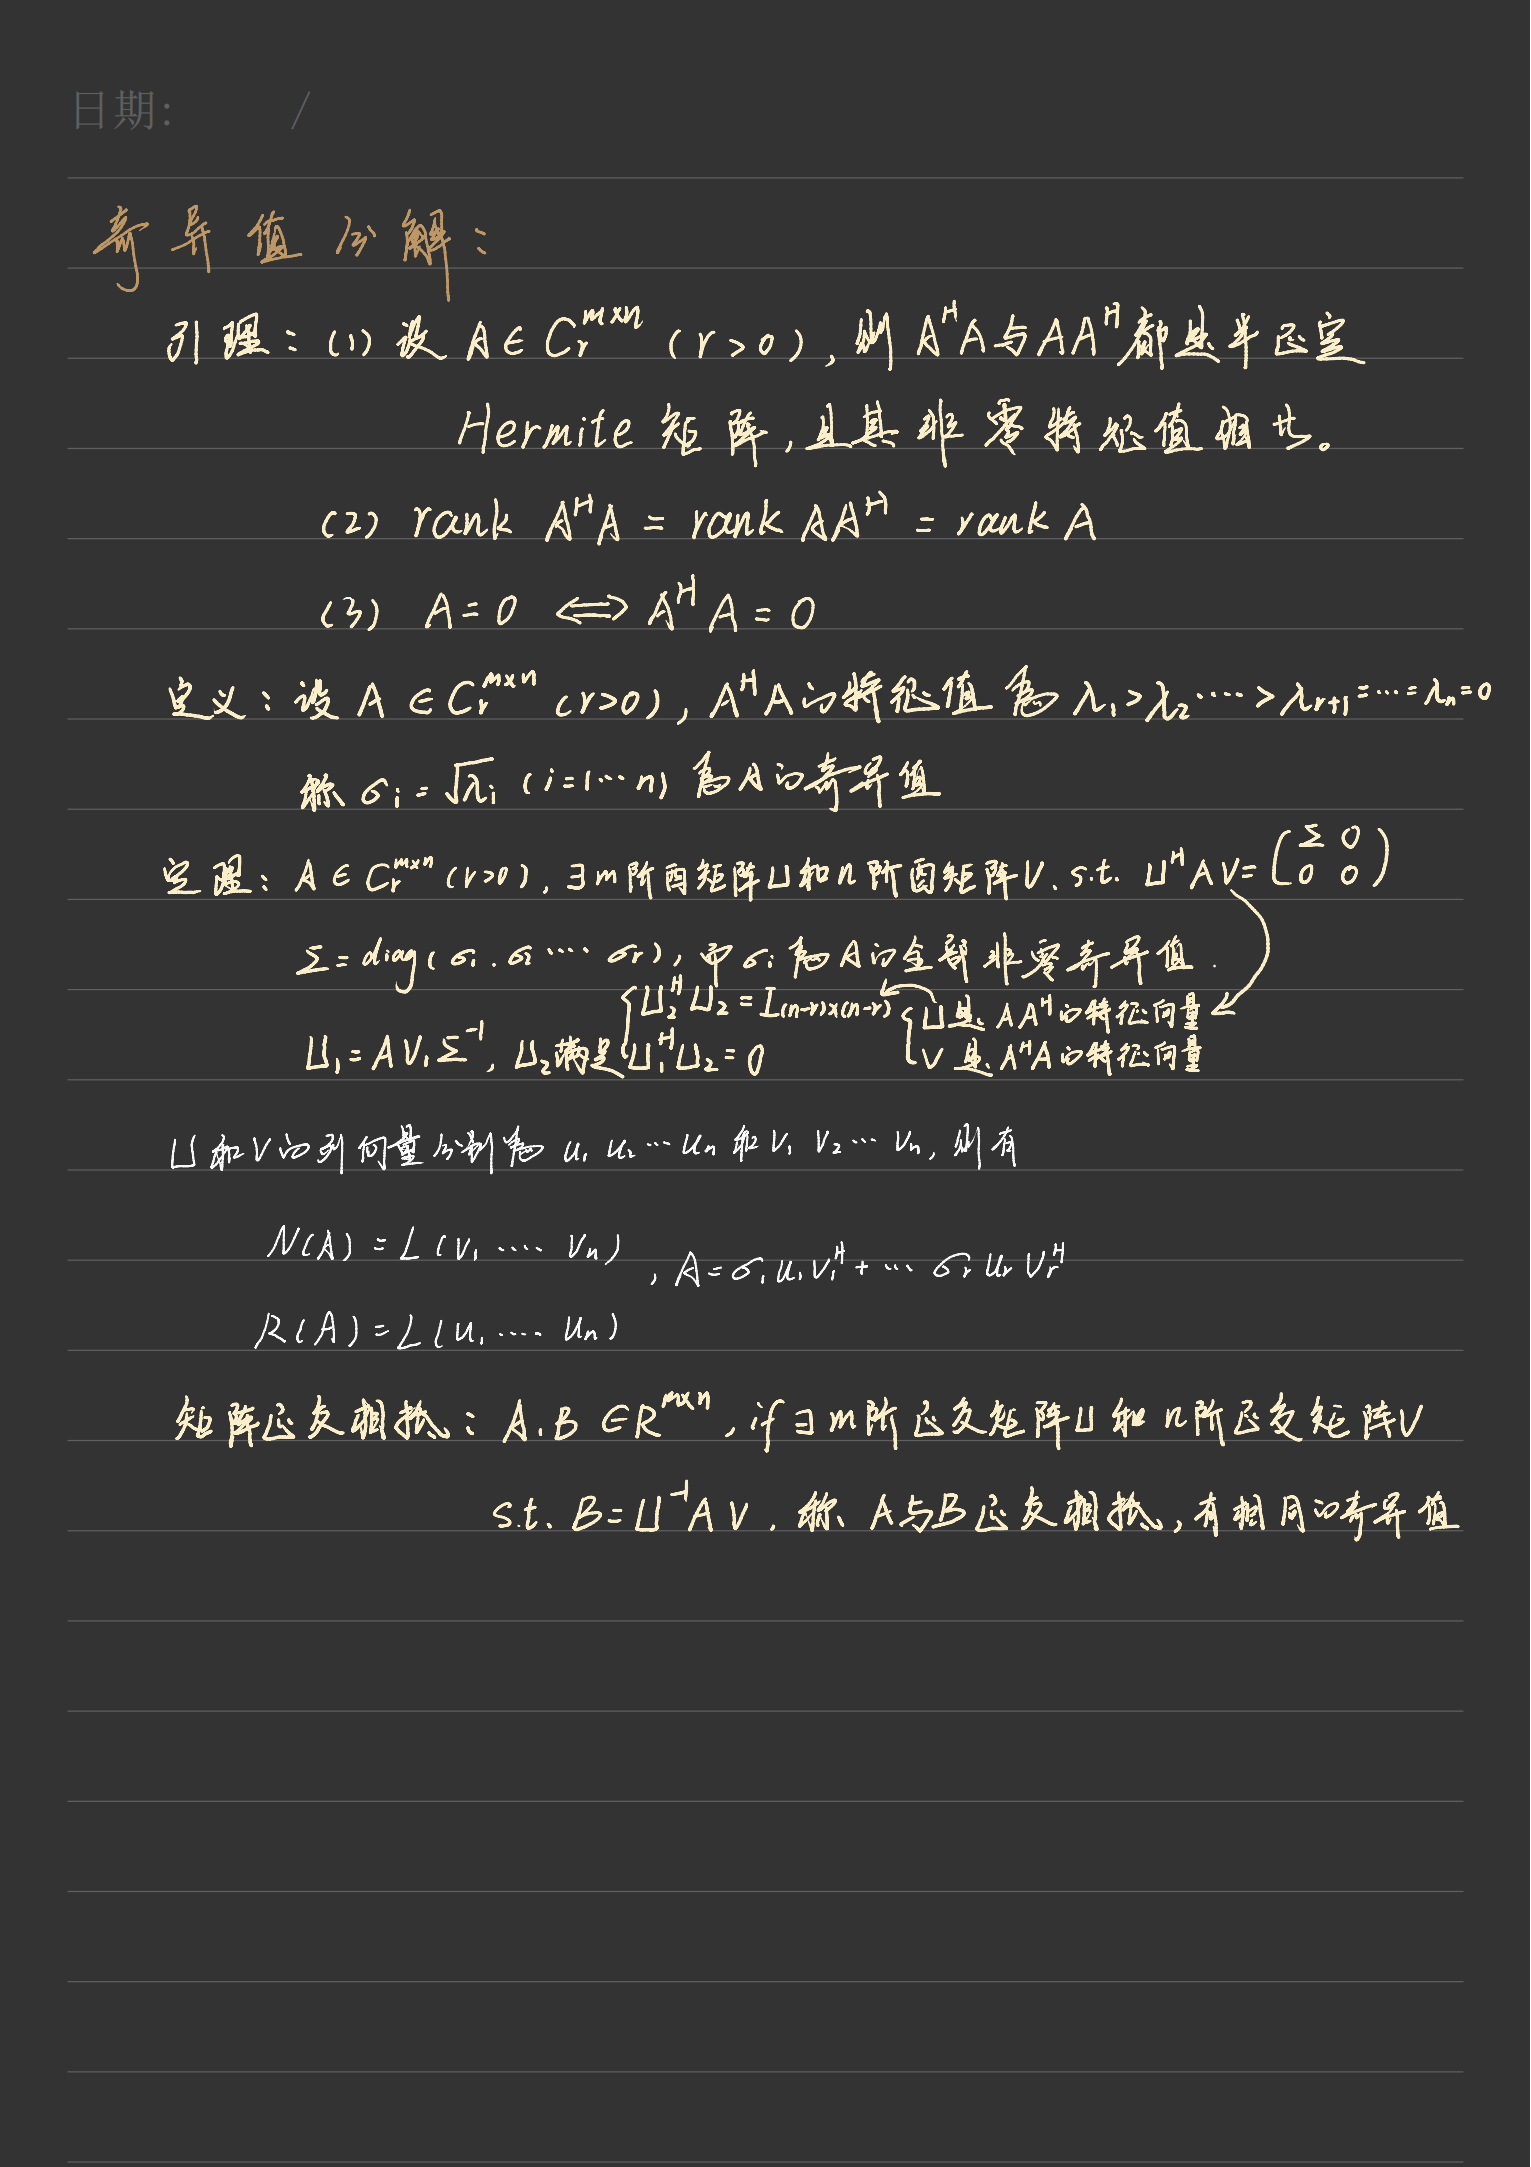 日期: /
奇异值分解:
引理:(1)设 A∈C_r^{m×n} (r>0), 则 A^H A与AA^H都是半正定
Hermite 矩阵,且其非零特征值相共。
(2) rank A^H A = rank AA^H = rank A
(3) A=0 ⟺ A^H A=0
定义:设 A∈C_r^{m×n} (r>0), A^H A的特征值为 λ_1>λ_2····>λ_{r+1}=···=λ_n=0
称 σ_i=√λ_i (i=1···n) 为A的奇异值
定理: A∈C_r^{m×n} (r>0), ∃m阶酉矩阵U和n阶酉矩阵V. s.t. U^H AV=(Σ 0
0 0)
Σ=diag(σ_1. σ_2 ···· σ_r), 而σ_i为A的全部非零奇异值.
{U_2^H U_2=I_{(n-r)×(n-r)} {U是 AA^H的特征向量
U_1=AV_1Σ^{-1}, U_2满足 U_1^H U_2=0 V是 A^H A的特征向量
U和V的列向量分别为 u_1 u_2···u_n 和 v_1 v_2···v_n, 则有
N(A)=L(v_1 ···· v_n) , A=σ_1u_1v_1^H+ ··· σ_r u_r v_r^H
R(A)=L(u_1 ···· u_n)
矩阵正交相抵: A.B∈R^{m×n}, if ∃m阶正交矩阵U和n阶正交矩阵V
s.t. B=U^{-1}AV. 称 A与B正交相抵, 有相同的奇异值